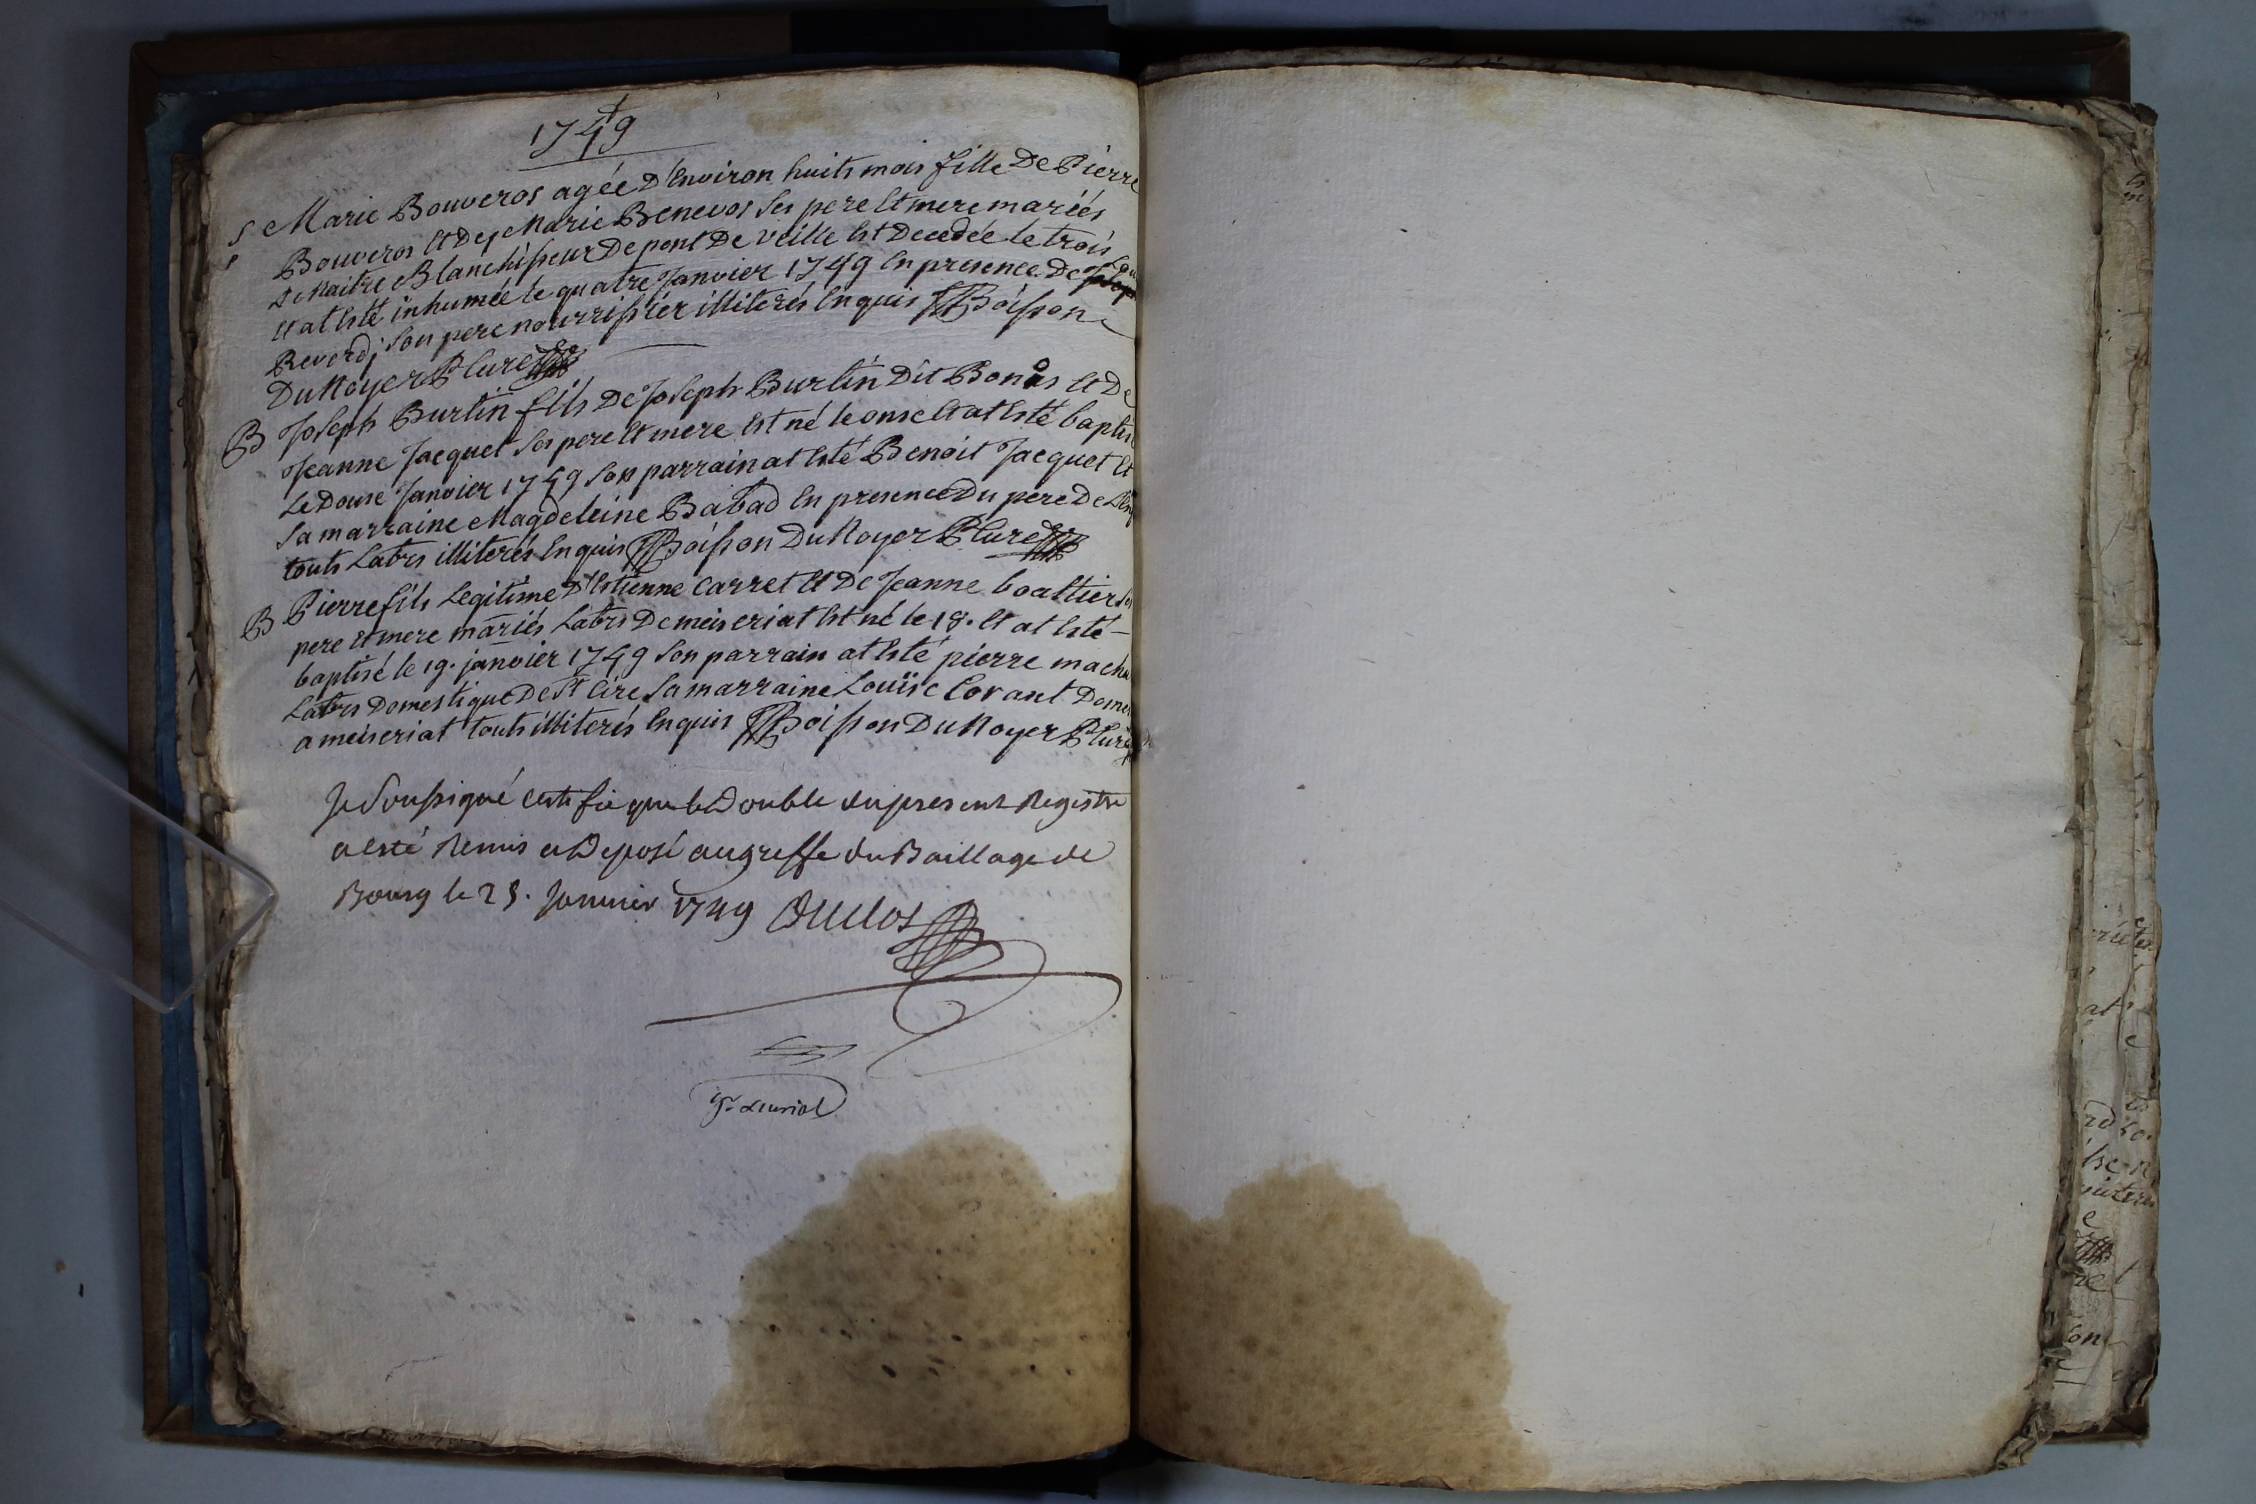 1749
S Marie Bouveros agée D'Environ huits mois fille De Pierre
Bouveros Et De Marie Benevos Ses pere Et mere mariés
Maitre Blanchisseur De pont De veille Est Decedée le trois
Et at Esté inhumée le quatre Janvier 1749 En presence De
Reverdj Son pere nourrissier illiterés Enquis Boisson
Du Noyer Curé
B Joseph Burtin fils De Joseph Burtin Dit Bonas Et De
Jeanne Jacquet Ses pere Et mere Est né le onse Et at Esté baptisé
Le Douse Janvier 1749 Son parrain at Esté Benoit Jacquet Et
Sa marraine Magdeleine Babad En presence Du pere De
touts Labrs illiterés Enquis Boisson Du Noyer Curé
B Pierre fils Legitime D'Estienne Carret Et De Jeanne boattier Ses
pere Et mere mariés Labrs De meiseriat Est né le 18. Et at Esté
baptisé le 19. janvier 1749 Son parrain at Esté pierre
Labrs Domestique De St Cire Sa marraine Louïse Corant
a meiseriat touts illiterés Enquis Boisson Du Noyer Curé
Je Soussigné certifie que le Double du present Registre
a esté Remis et Deposé au greffe du Baillage de
Bourg le 25. Janvier 1749